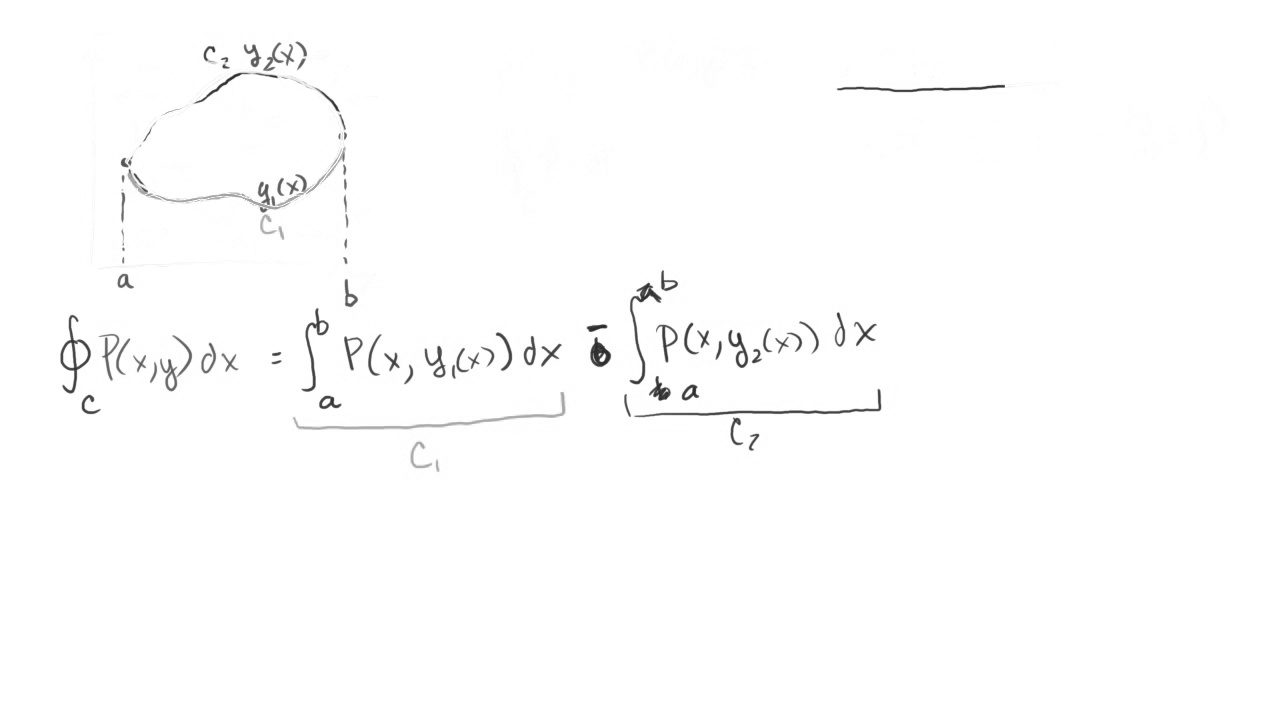 C₂ y₂(x)
y₁(x)
C₁
a
b
∮_C P(x,y) dx = ∫_a^b P(x, y₁(x)) dx - ∫_a^b P(x, y₂(x)) dx
C₁
C₂